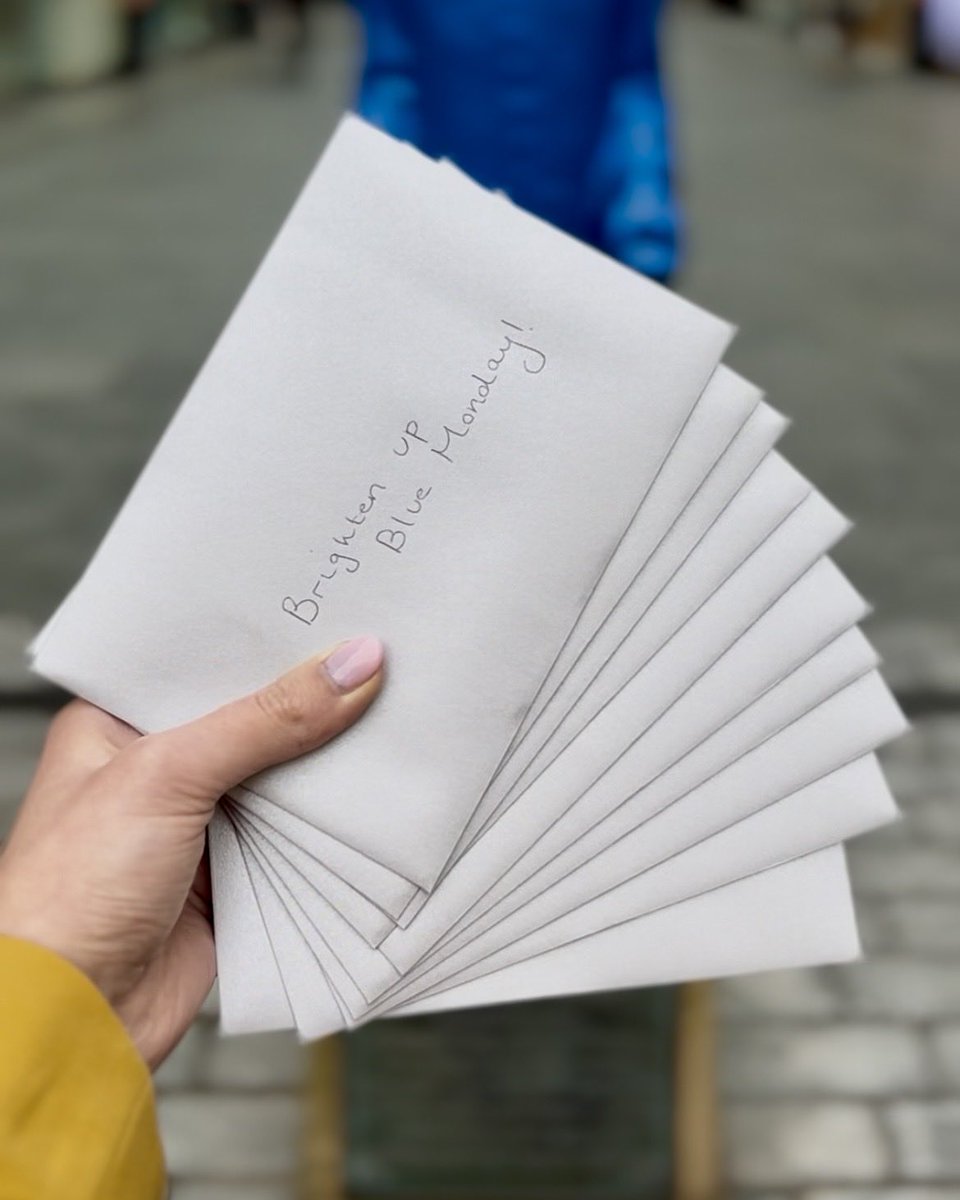 Brighten up
Blue Monday!